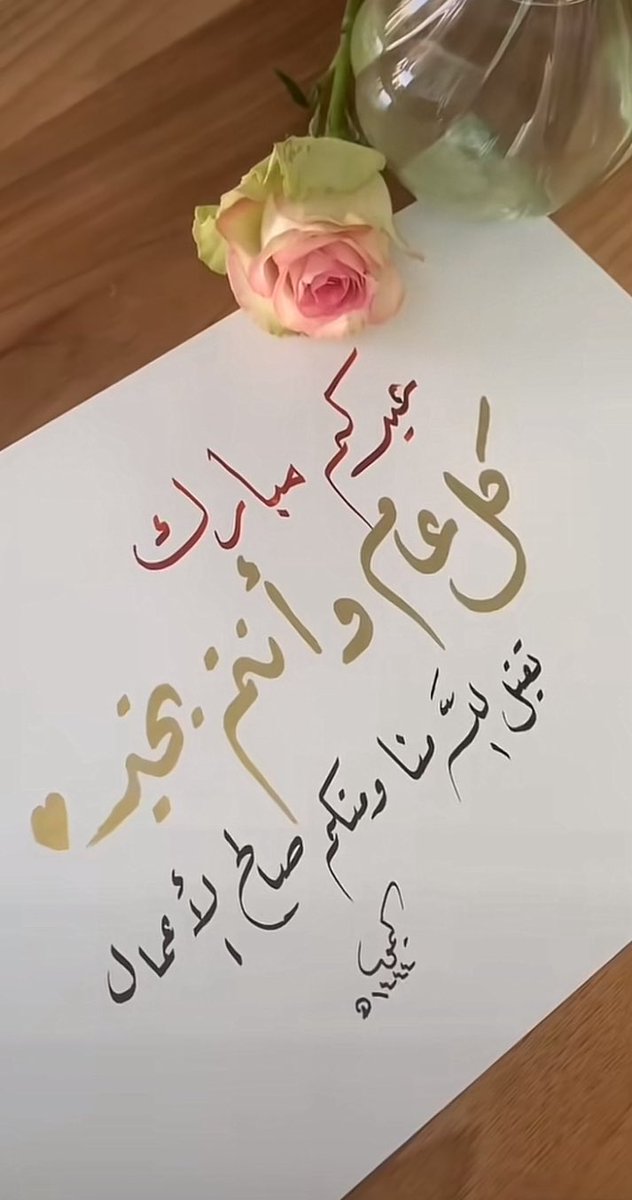 عيدكم مبارك
كل عام وأنتم بخير
تقبل الله منا ومنكم صالح الأعمال
١٤٤٤هـ